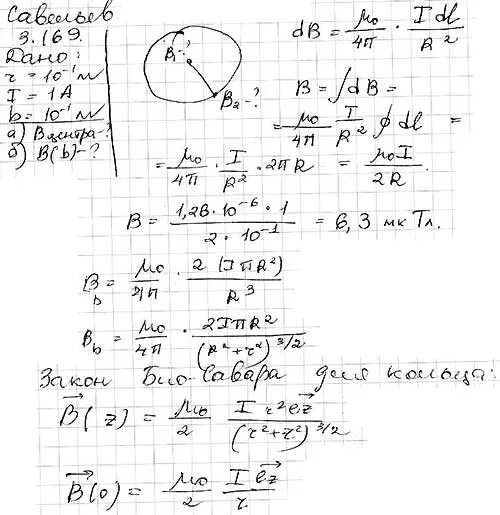 Савельев
3.169.
Дано:
r = 10⁻¹ м
I = 1 А
b = 10⁻¹ м
а) Bцентра-?
б) B(b)-?
B₁-?
B₂-?
dB = μ₀/4π · I dl/R²
B = ∫dB =
= μ₀/4π I/R² ∮ dl =
= μ₀/4π · I/R² · 2πR = μ₀I/2R.
B = 1,26·10⁻⁶·1 / 2·10⁻¹ = 6,3 мкТл.
B_b = μ₀/4π · 2(IπR²)/R³
B_b = μ₀/4π · 2IπR²/(R²+r²)^3/2
Закон Био-Савара для кольца:
B⃗(z) = μ₀/2 I r²e⃗z/(r²+r²)^3/2
B⃗(0) = μ₀/2 I e⃗z/r.